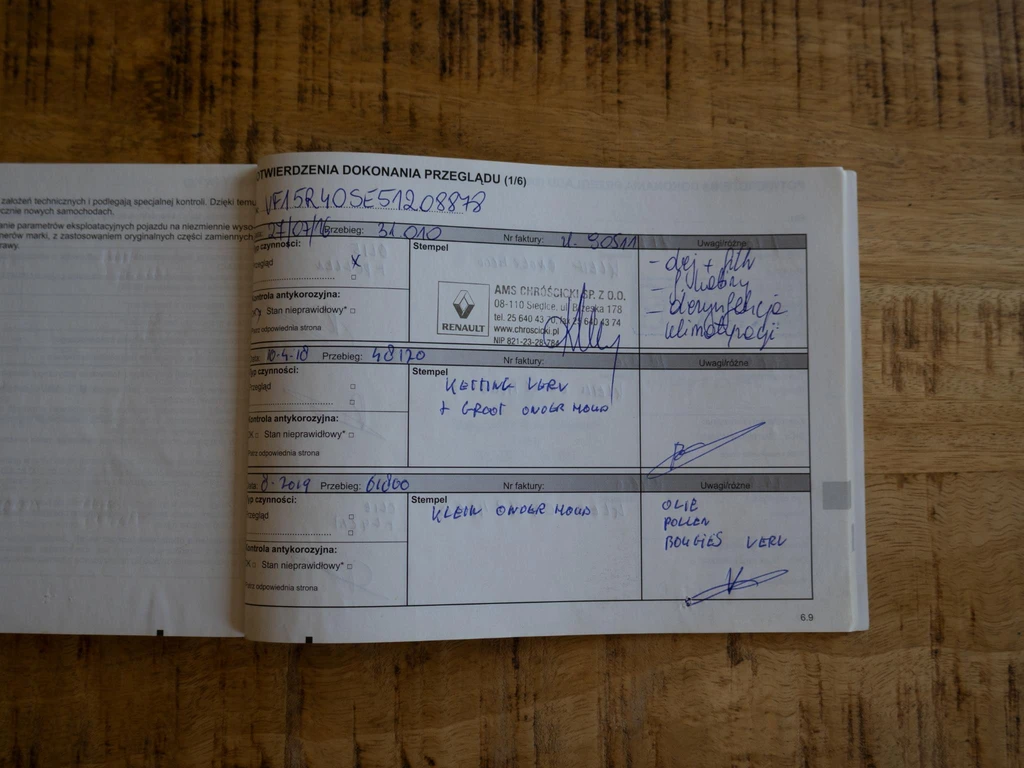 założeń technicznych i podlegają specjalnej kontroli. Dzięki temu
cznie nowych samochodach.
anie parametrów eksploatacyjnych pojazdu na niezmiennie wyso
nerów marki, z zastosowaniem oryginalnych części zamiennych
rawy.
OTWIERDZENIA DOKONANIA PRZEGLĄDU (1/6)
VF15R40SE51208878
27/07/16 Przebieg: 31 010 Nr faktury: 90511 Uwagi/różne
yp czynności:
rzegląd X
Stempel
RENAULT
AMS CHRÓŚCICKI SP. Z O.O.
08-110 Siedlce, ul. Brzeska 178
tel. 25 640 43 70, fax 25 640 43 74
www.chroscicki.pl
NIP 821-23-28-784
- olej + filtr
- dezynfekcja
klimatyzacji
ontrola antykorozyjna:
Stan nieprawidłowy*
Patrz odpowiednia strona
10-4-18 Przebieg: 48120 Nr faktury: Uwagi/różne
yp czynności:
rzegląd
Stempel
KETTING VERV
+ GROOT ONDER HOUD
ontrola antykorozyjna:
OK Stan nieprawidłowy*
Patrz odpowiednia strona
8-2019 Przebieg: 61800 Nr faktury: Uwagi/różne
yp czynności:
rzegląd
Stempel
KLEIN ONDER HOUD
OLIE
POLLEN
BOUGIES VERV
ontrola antykorozyjna:
OK Stan nieprawidłowy*
Patrz odpowiednia strona
6.9